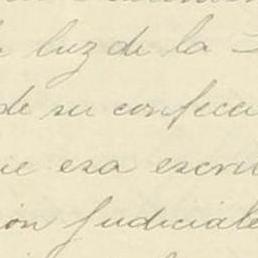 luz de la
de su confecci
ue esa escri
ión judiciale